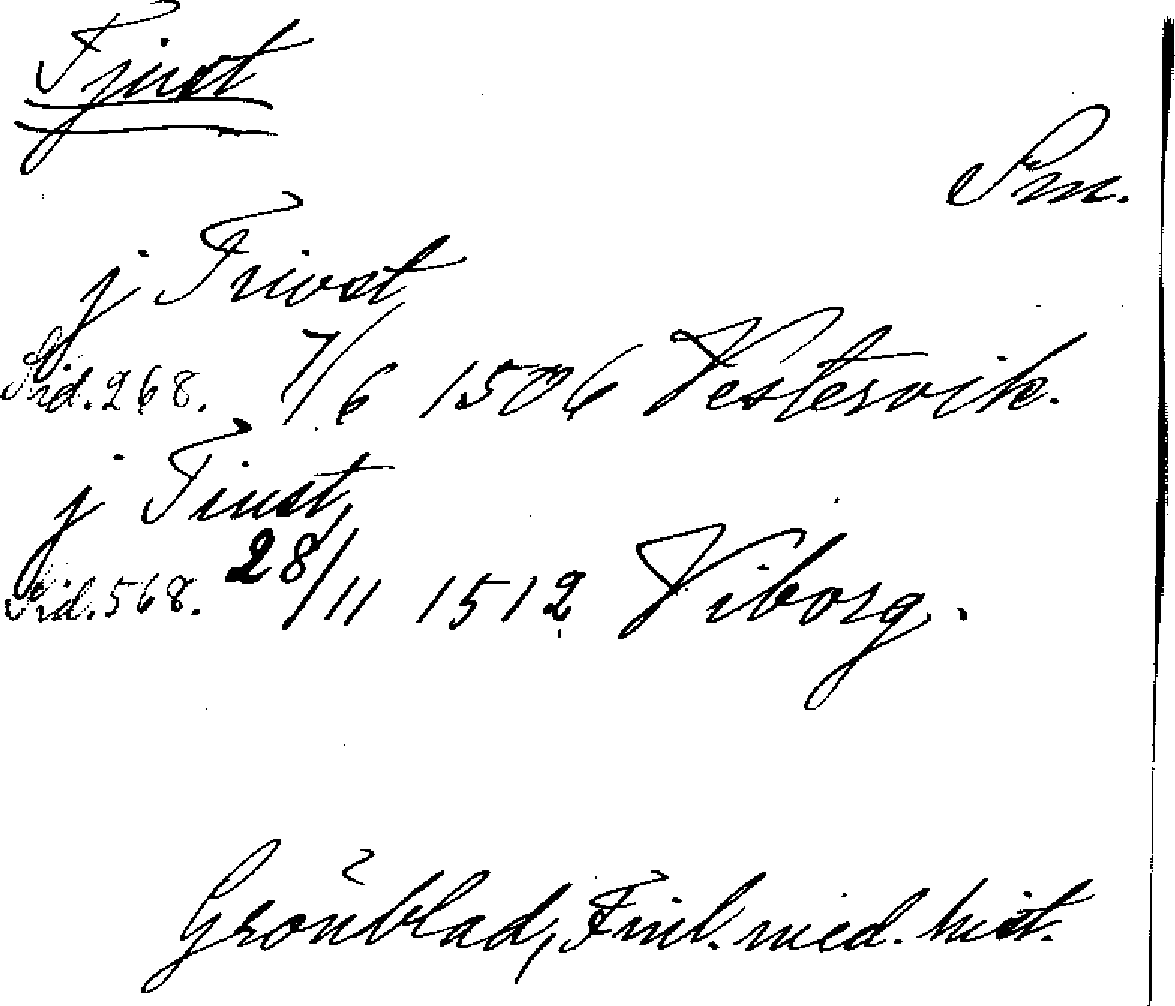 Tjust
Sm.
j Tiwst
Sid. 268. 7/6 1506 Vestervik.
j Tiust
Sid. 568. 28/11 1512 Viborg.
Grönblad, Finl. med. hist.